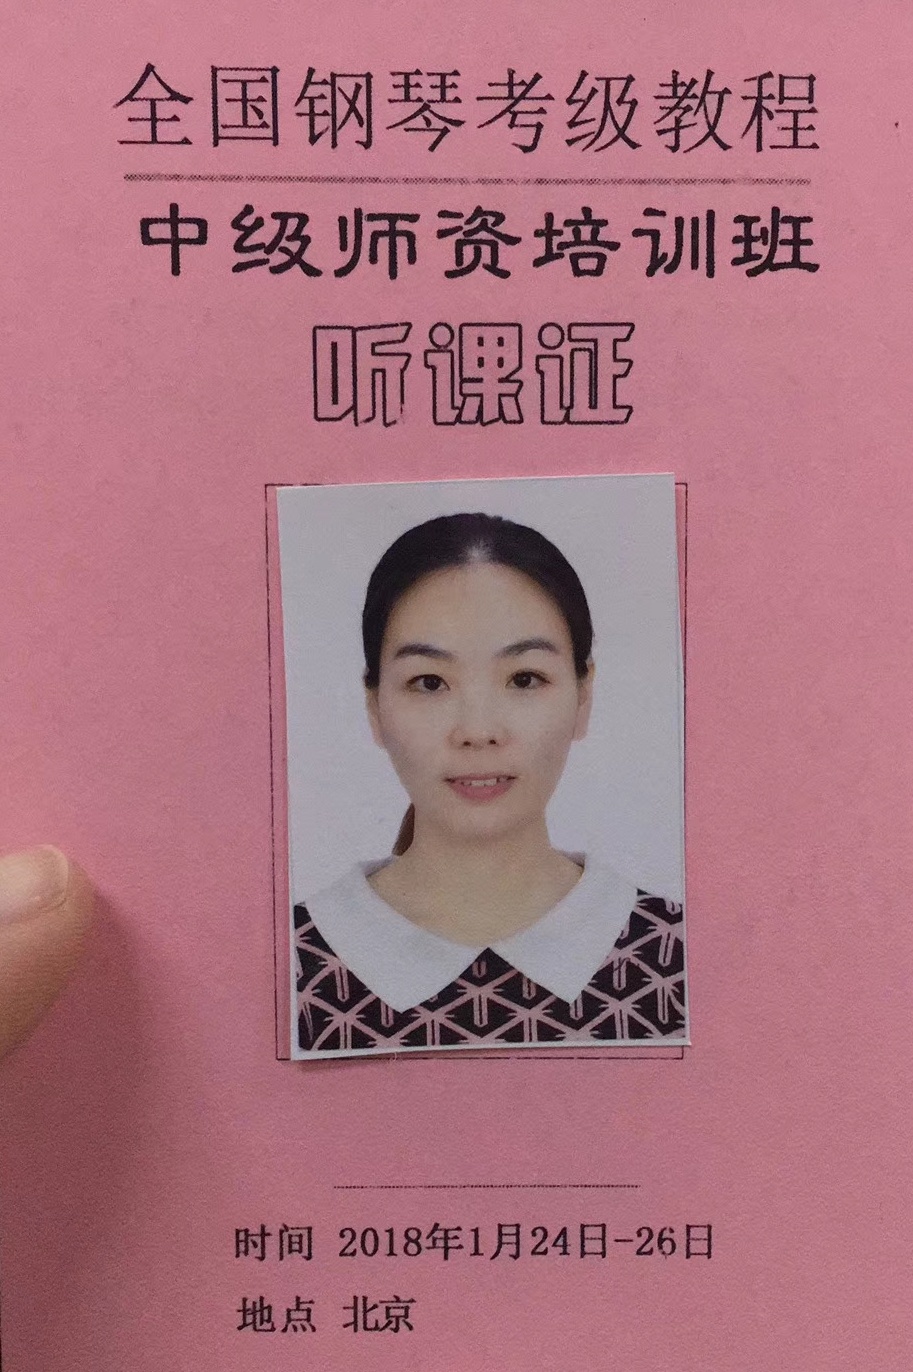 全国钢琴考级教程
中级师资培训班
听课证
时间 2018年1月24日-26日
地点 北京